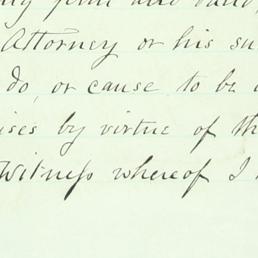 Attorney or his su
do, or cause to be
ises by virtue of th
Witneſs whereof I